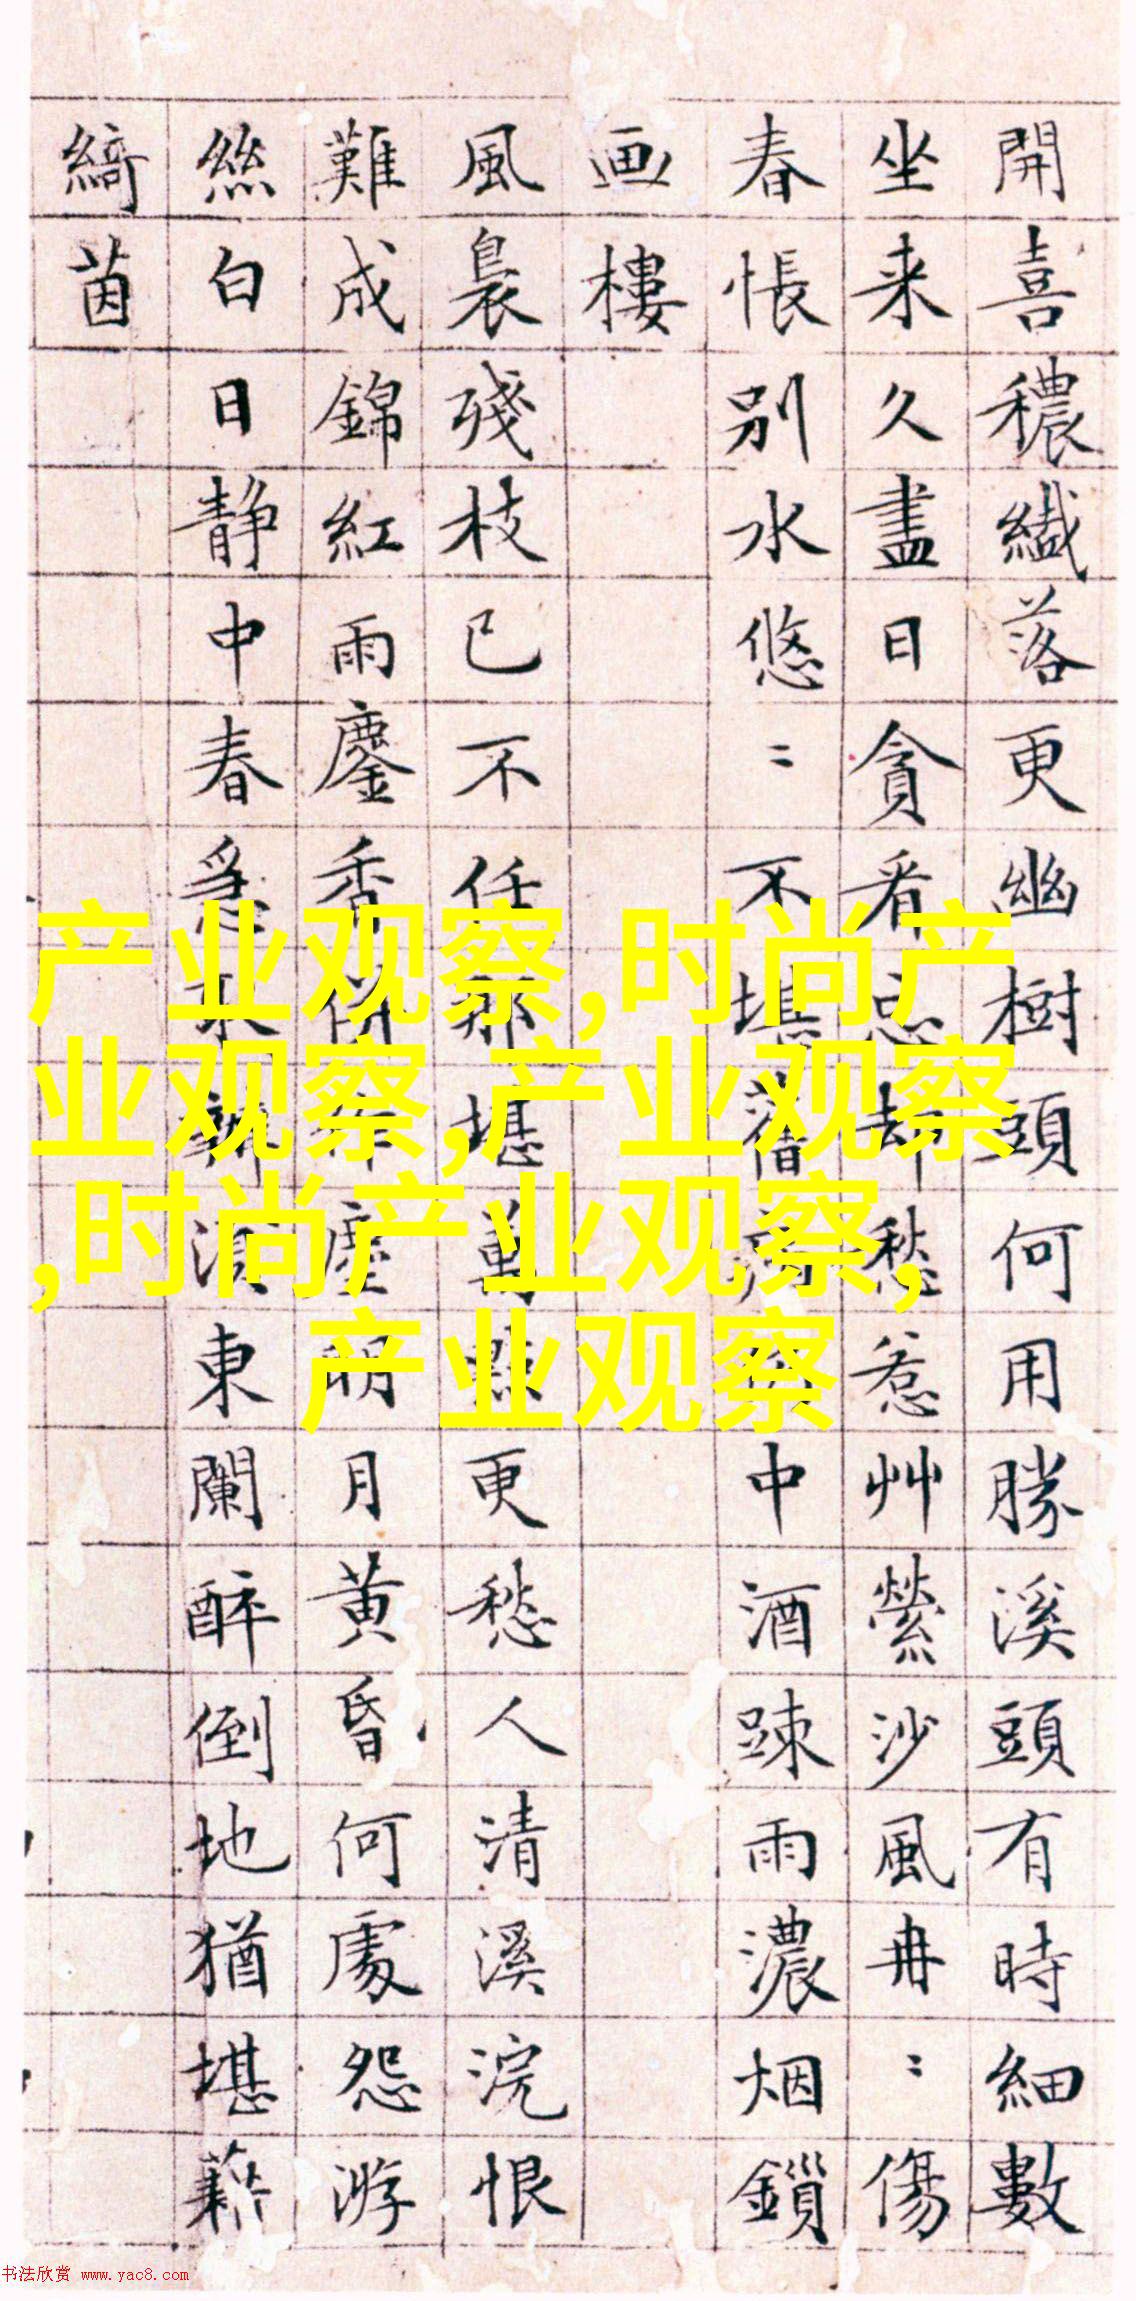 開喜穠纎落更幽樹頭何用勝溪頭有時細數
坐来久盡日貪看忘却愁惹艸縈沙風冉〻傷
春悵別水悠〻不堪舊中酒踈雨濃烟鎖
画樓
風裊殘枝已不任那堪萬點更愁人清溪浣恨
難成錦紅雨鏖香併作塵明月黄昏何處怨游
絲白日静中春急須東闌醉倒地猶堪藉
綺茵
产业观察,时尚产
业观察,产业观察
,时尚产业观察,
产业观察
书法欣赏 www.yac8.com